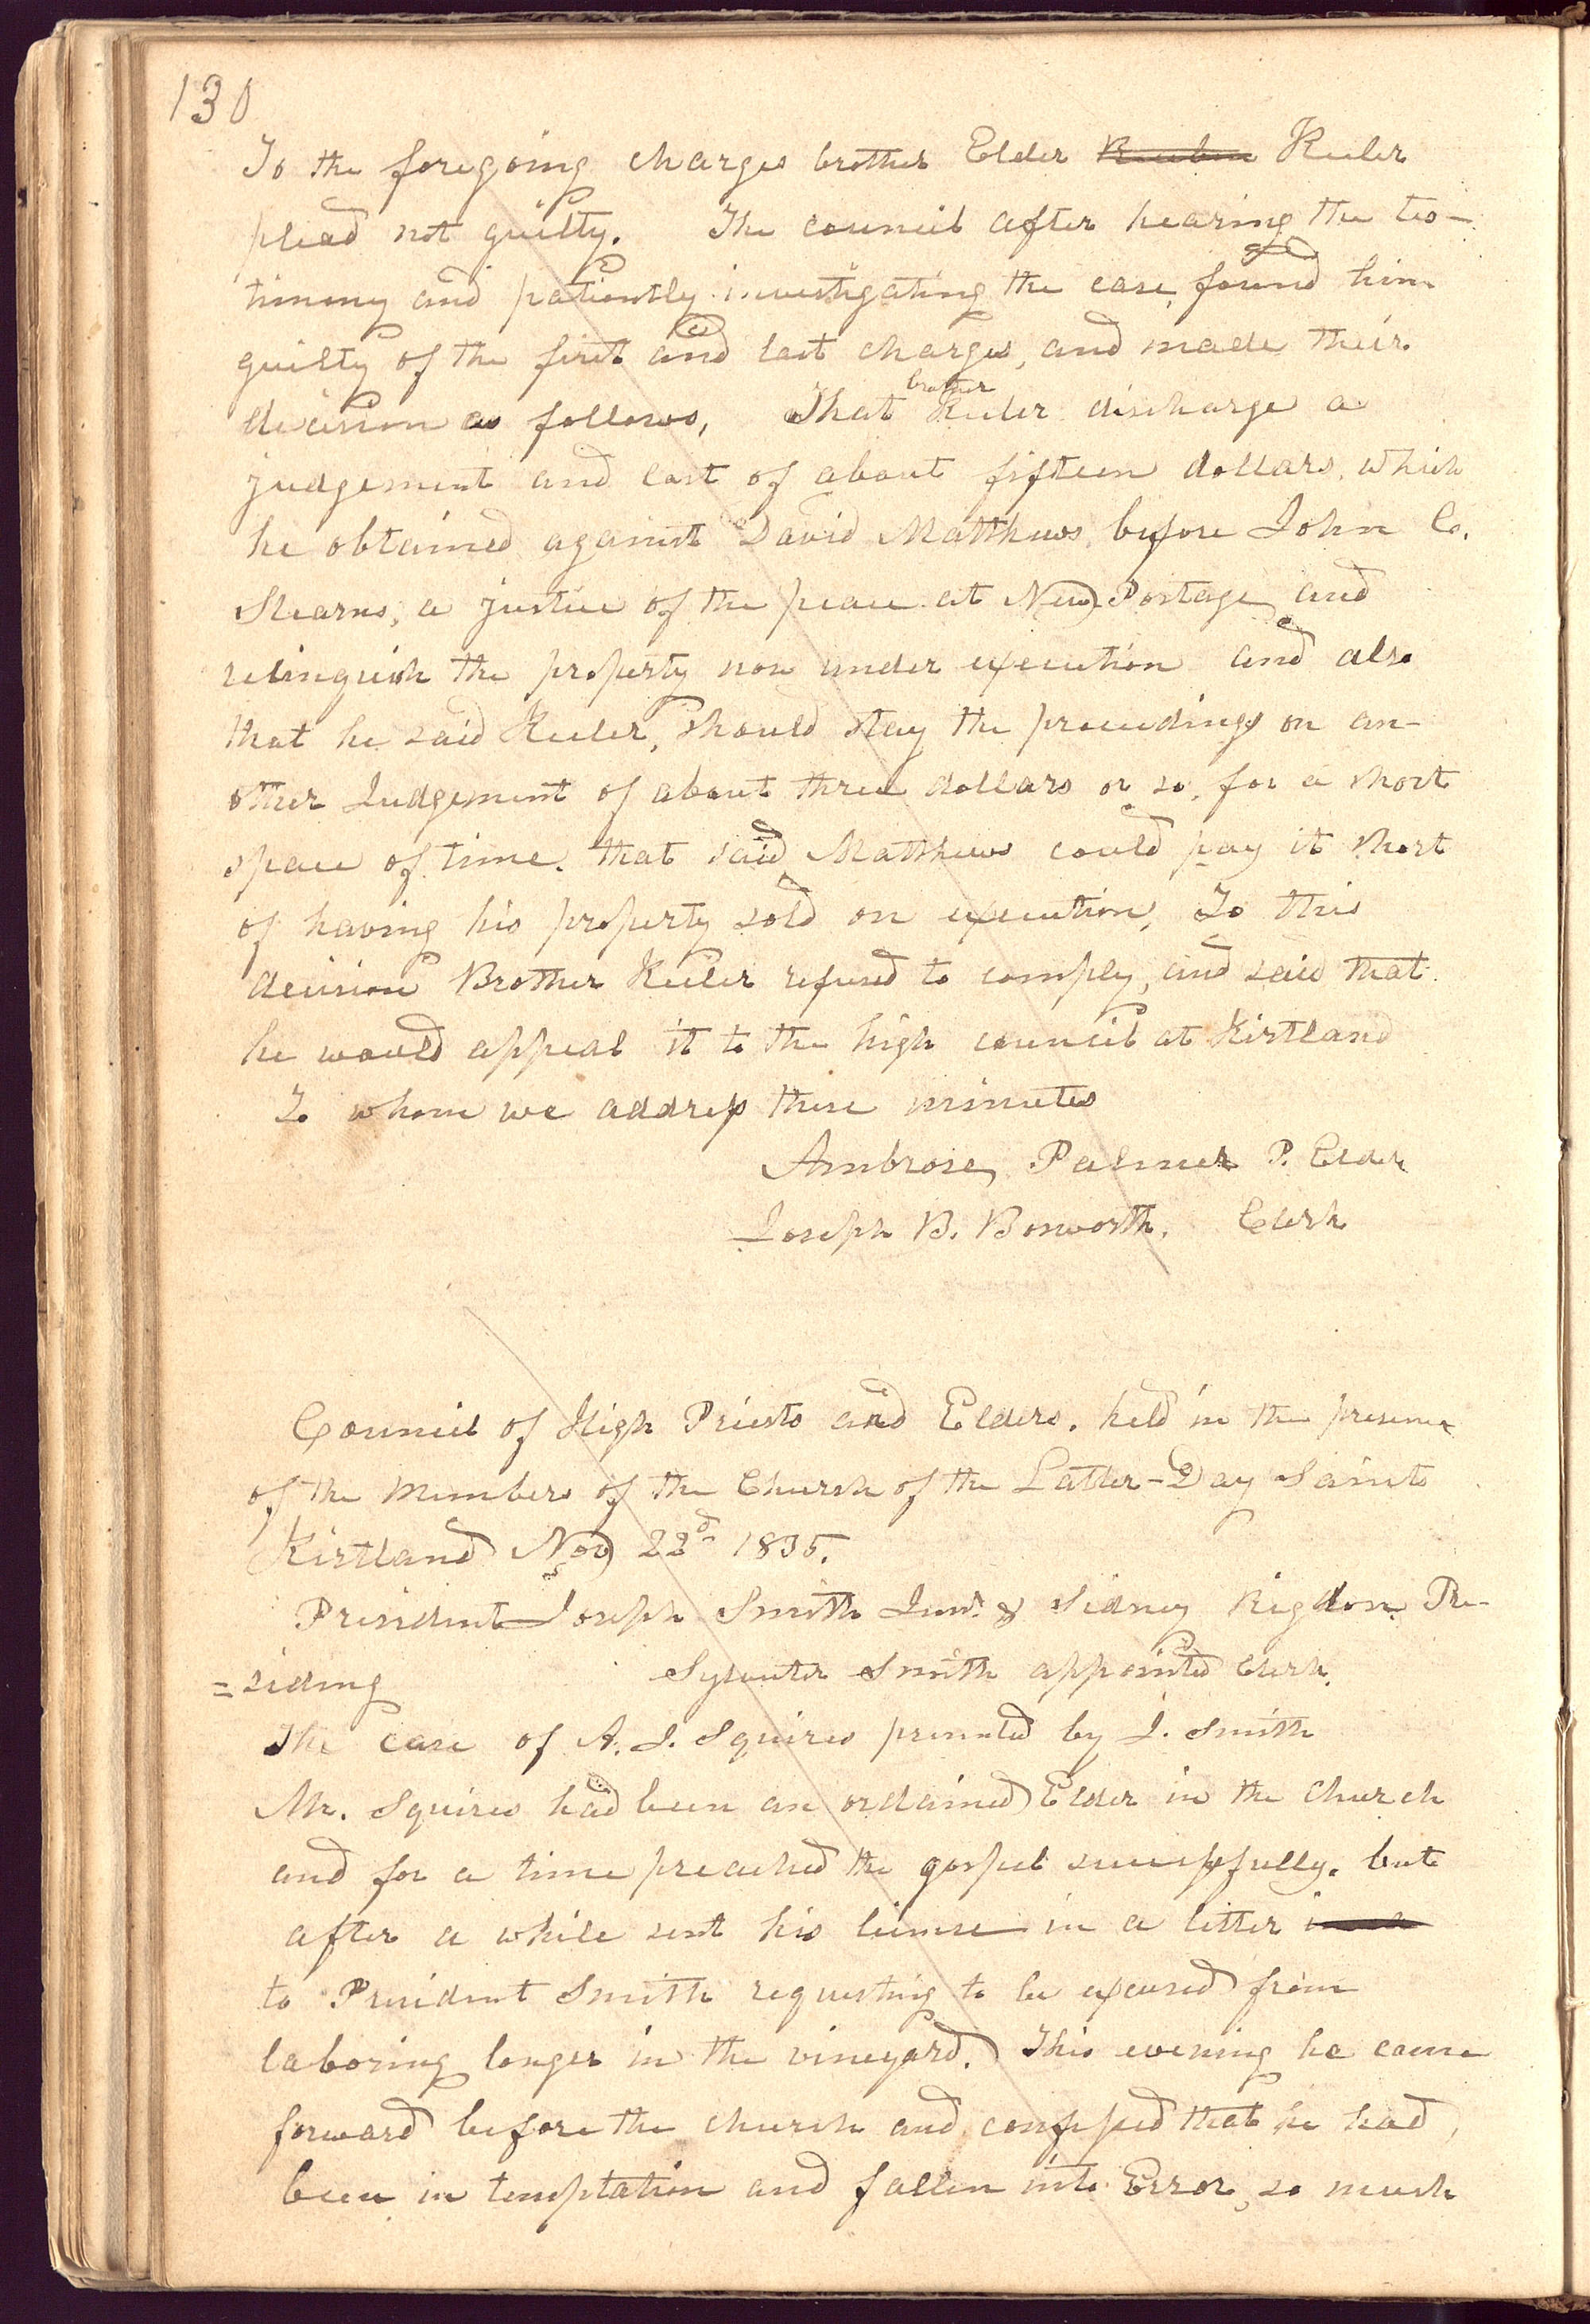 130
To the foregoing charges brother Elder Reuben Keeler
plead not guilty. The council after hearing the tes-
timony and patiently investigating the case, found him
guilty of the first and last charges, and made their
decision as follows, That brother Keeler discharge a
judgement and cost of about fifteen dollars, which
he obtained against David Matthews, before John C.
Stearns, a justice of the peace at New Portage, and
relinquish the property now under execution and also
that he said Keeler, should stay the proceedings on an-
other Judgement of about three dollars or so, for a short
space of time, that said Matthews could pay it short
of having his property sold on execution, To this
decision Brother Keeler refused to comply, and said that
he would appeal it to the high council at Kirtland
To whom we address these minutes
Ambrose Palmer P. Elder
Joseph B. Bosworth, Clerk
Council of High Priests and Elders, held in the presence
of the Members of the Church of the Latter-Day Saints
Kirtland Nov 22d 1835.
President Joseph Smith Junr. & Sidney Rigdon Pre-
=siding Sylvester Smith appointed Clerk.
The case of A. J. Squires presented by J. Smith
Mr. Squires had been an ordained Elder in the Church
and for a time preached the gospel successfully, but
after a while sent his license in a letter in a
to President Smith requesting to be excused from
laboring longer in the vineyard. This evening he came
forward before the church and confessed that he had,
been in temptation and fallen into Error, so much